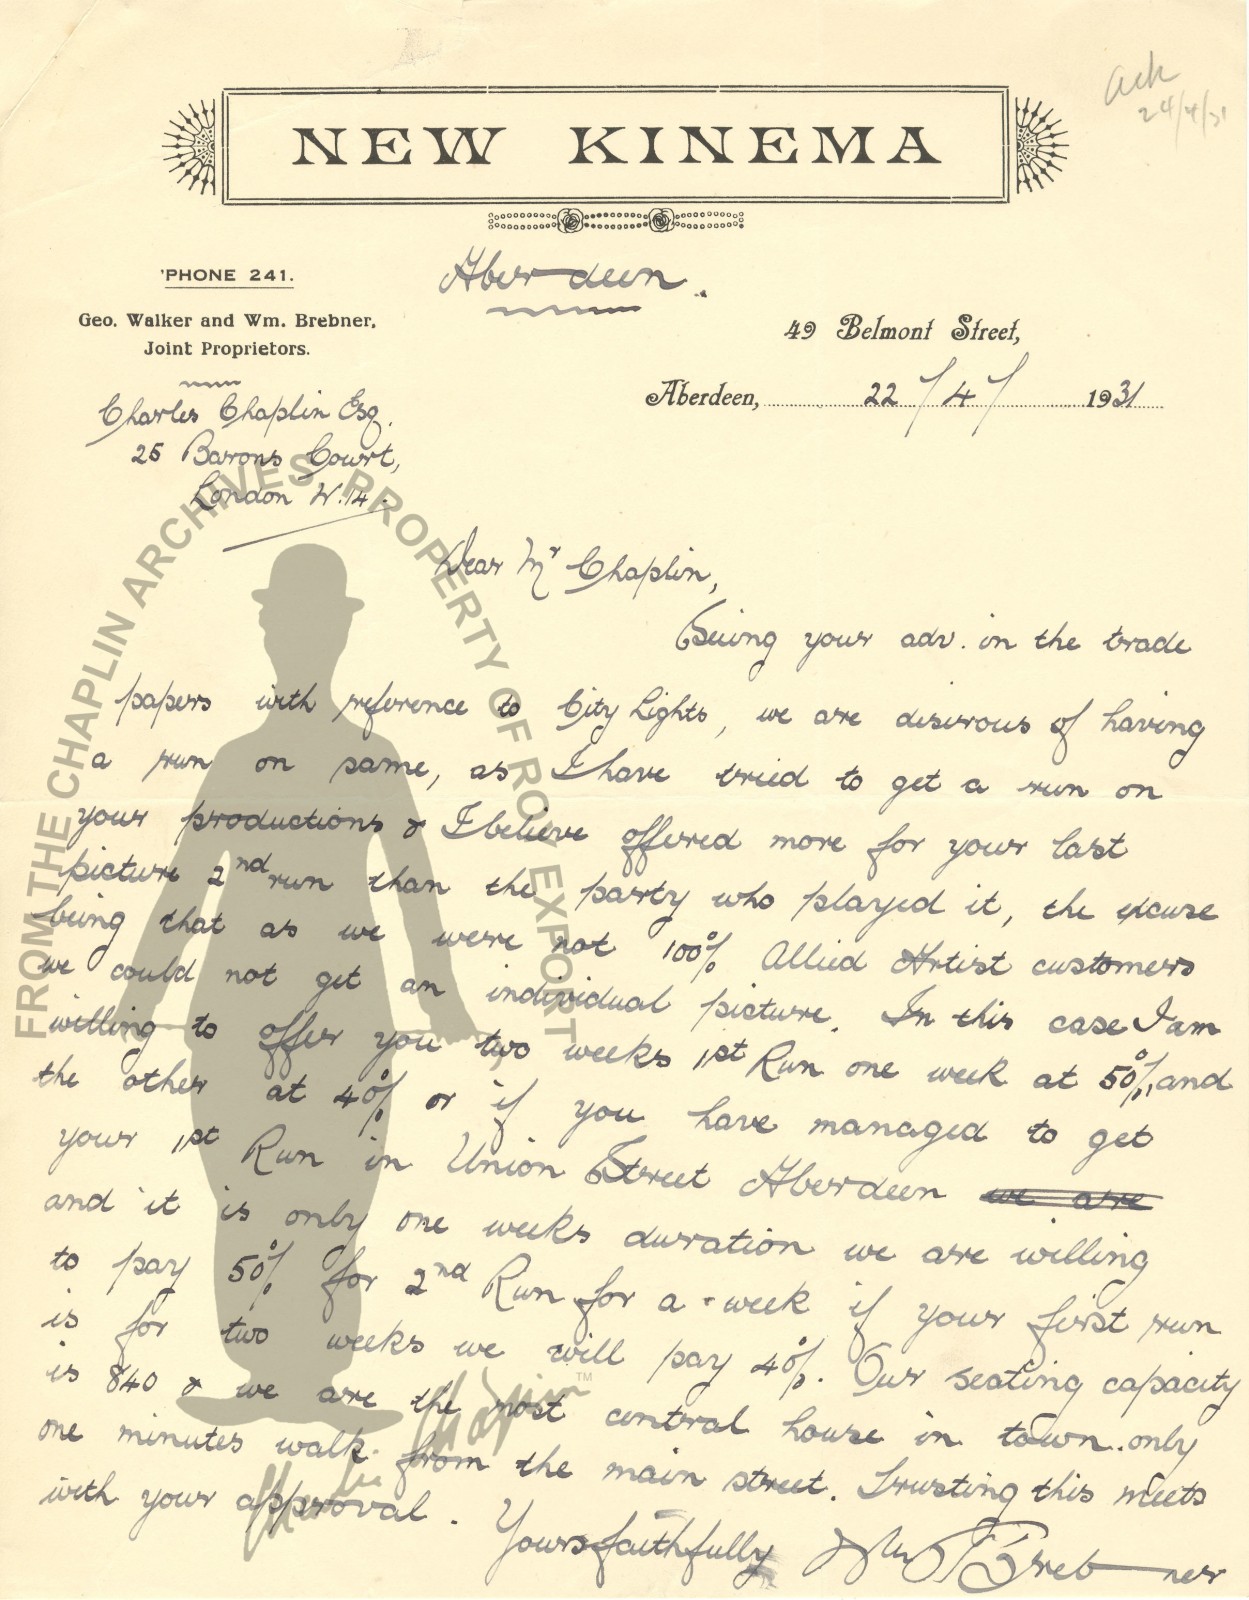 Ack
24/4/31
NEW KINEMA
'PHONE 241.
Aberdeen.
Geo. Walker and Wm. Brebner,
Joint Proprietors.
49 Belmont Street,
Aberdeen, 22/4/ 1931
Charles Chaplin Esq.
25 Barons Court,
London W.14.
Dear Mr Chaplin,
Seeing your adv. in the trade
papers with reference to City Lights, we are desirous of having
a run on same, as I have tried to get a run on
your productions & I believe offered more for your last
picture 2nd run than the party who played it, the excuse
being that as we were not 100% Allied Artist customers
we could not get an individual picture. In this case I am
willing to offer you two weeks 1st Run one week at 50%, and
the other at 40% or if you have managed to get
your 1st Run in Union Street Aberdeen we are
and it is only one weeks duration we are willing
to pay 50% for 2nd Run for a week if your first run
is for two weeks we will pay 40%. Our seating capacity
is 840 & we are the most central house in town only
one minutes walk from the main street. Trusting this meets
with your approval.
Yours faithfully Wm Brebner
FROM THE CHAPLIN ARCHIVES PROPERTY OF ROY EXPORT
Charlie Chaplin™